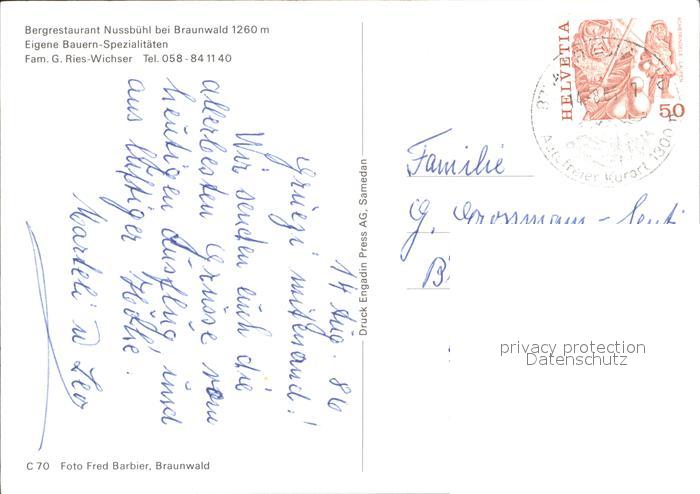 Bergrestaurant Nussbühl bei Braunwald 1260 m
Eigene Bauern-Spezialitäten
Fam. G. Ries-Wichser Tel. 058 - 84 11 40
14. Aug. 86
Grüezi mitenand!
Wir senden euch die
allerbesten Grüsse vom
heutigen Ausflug und
aus luftiger Höhe.
Marteli u Leo
C 70 Foto Fred Barbier, Braunwald
Druck Engadin Press AG, Samedan
HELVETIA
50
Autofreier Kurort 1300 m
Familie
G. Grossmann -
privacy protection
Datenschutz